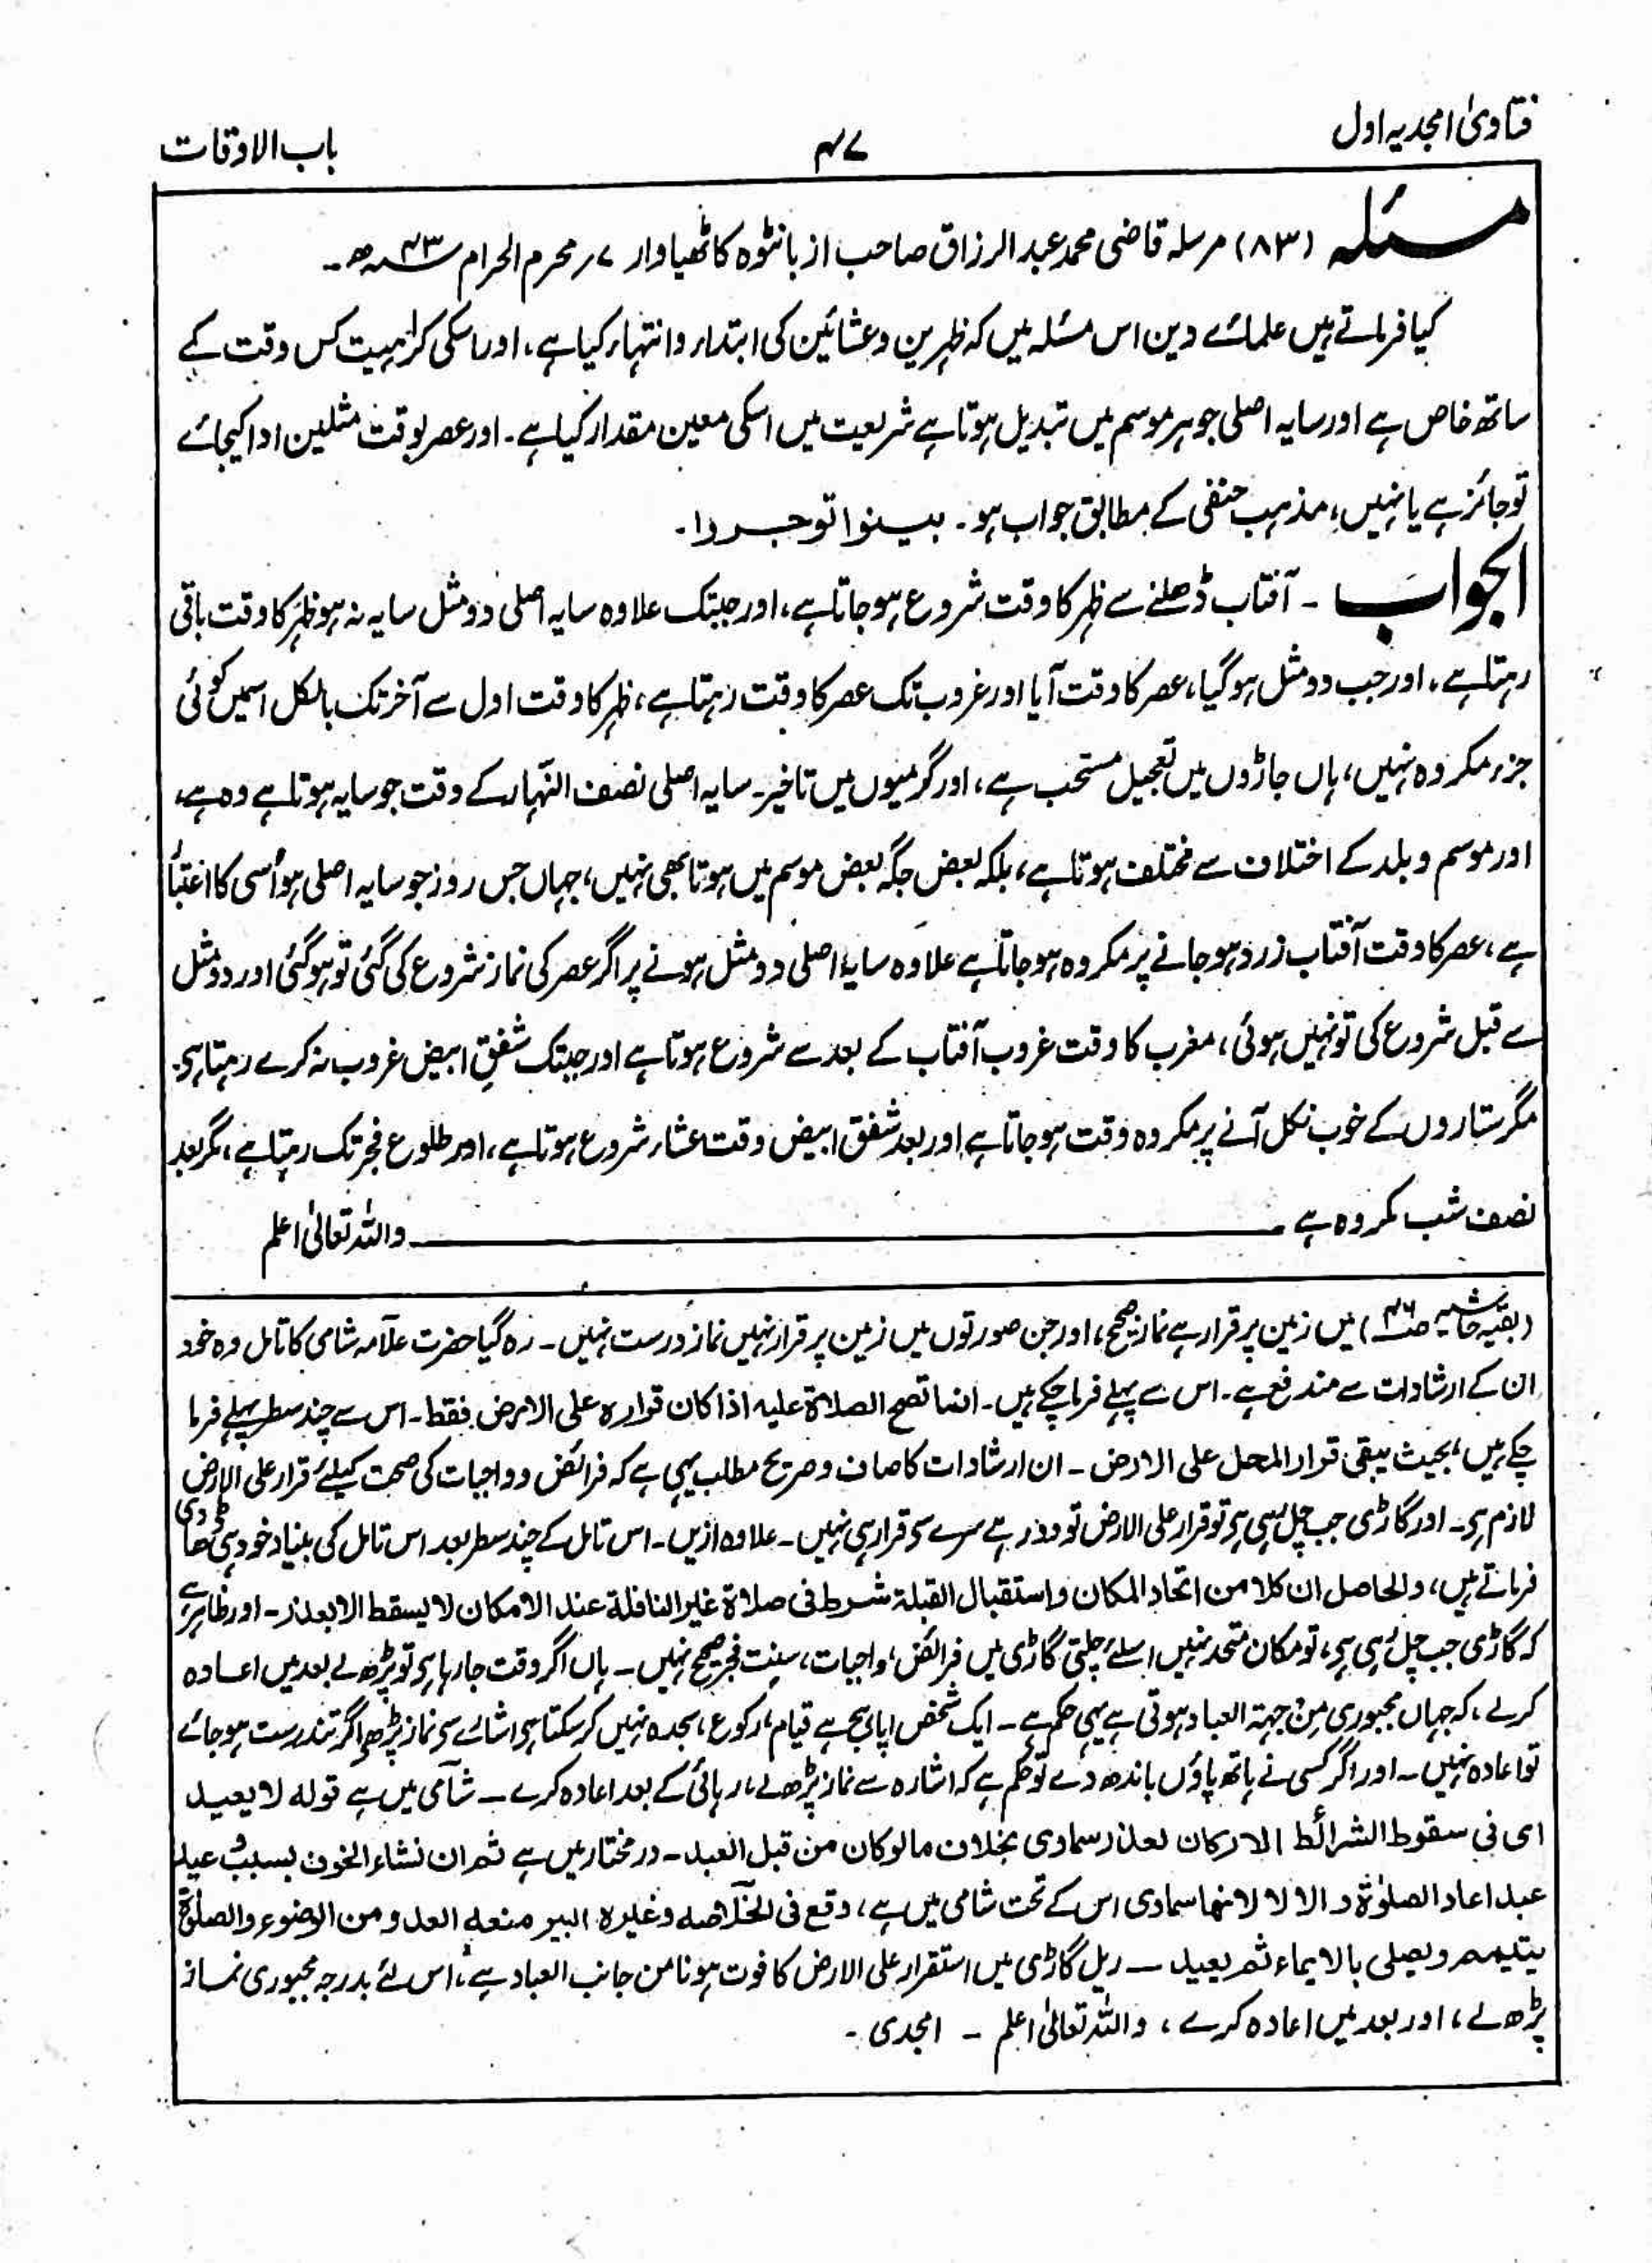 فتاویٰ امجدیہ اول
۴۷
باب الاوقات
مسئلہ (۸۳) مرسلہ قاضی محمد عبد الرزاق صاحب از بانٹوہ کاٹھیاوار ۷؍ محرم الحرام ۴۳ھ۔
کیا فرماتے ہیں علمائے دین اس مسئلہ میں کہ ظہرین و عشائین کی ابتداء و انتہاء کیا ہے، اور اسکی کراہیت کس وقت کے
ساتھ خاص ہے اور سایہ اصلی جو ہر موسم میں تبدیل ہوتا ہے شریعت میں اسکی معین مقدار کیا ہے۔ اور عصر بوقت مثلین ادا کیجائے
تو جائز ہے یا نہیں، مذہب حنفی کے مطابق جواب ہو۔ بینوا توجروا۔
الجواب ۔ آفتاب ڈھلنے سے ظہر کا وقت شروع ہو جاتا ہے، اور جبتک علاوہ سایہ اصلی دو مثل سایہ نہ ہو ظہر کا وقت باقی
رہتا ہے، اور جب دو مثل ہو گیا، عصر کا وقت آیا اور غروب تک عصر کا وقت رہتا ہے، ظہر کا وقت اول سے آخر تک بالکل اسمیں کوئی
جزء مکروہ نہیں، ہاں جاڑوں میں تعجیل مستحب ہے، اور گرمیوں میں تاخیر۔ سایہ اصلی نصف النہار کے وقت جو سایہ ہوتا ہے وہ ہے،
اور موسم و بلد کے اختلاف سے مختلف ہوتا ہے، بلکہ بعض جگہ بعض موسم میں ہوتا بھی نہیں، جہاں جس روز جو سایہ اصلی ہو اُسی کا اعتبار
ہے، عصر کا وقت آفتاب زرد ہو جانے پر مکروہ ہو جاتا ہے علاوہ سایۂ اصلی دو مثل ہونے پر اگر عصر کی نماز شروع کی گئی تو ہو گئی اور دو مثل
سے قبل شروع کی تو نہیں ہوئی، مغرب کا وقت غروب آفتاب کے بعد سے شروع ہوتا ہے اور جبتک شفقِ ابیض غروب نہ کرے رہتا ہی۔
مگر ستاروں کے خوب نکل آنے پر مکروہ وقت ہو جاتا ہے اور بعد شفق ابیض وقت عشاء شروع ہوتا ہے، اور طلوع فجر تک رہتا ہے، مگر بعد
نصف شب مکروہ ہے ۔ واللہ تعالیٰ اعلم
(بقیہ حاشیہ ص۴۶) میں زمین پر قرار ہے نماز صحیح، اور جن صورتوں میں زمین پر قرار نہیں نماز درست نہیں۔ رہ گیا حضرت علّامہ شامی کا تامل وہ خود
ان کے ارشادات سے مندفع ہے۔ اس سے پہلے فرما چکے ہیں۔ انما تصح الصلاۃ علیہ اذا کان قرارہ علی الارض فقط۔ اس سے چند سطر پہلے فرما
چکے ہیں، بحیث یبقی قرار المحل علی الارض ۔ ان ارشادات کا صاف و صریح مطلب یہی ہے کہ فرائض و واجبات کی صحت کیلئے قرار علی الارض
لازم ہی۔ اور گاڑی جب چل رہی ہی تو قرار علی الارض تو دور ہے سرے سی قرار ہی نہیں۔ علاوہ ازیں۔ اس تامل کے چند سطر بعد اس تامل کی بنیاد خود ہی ڈھا دی
فرماتے ہیں، والحاصل ان کلا من اتحاد المکان واستقبال القبلۃ شرط فی صلاۃ غیر النافلۃ عند الامکان لا یسقط الا بعذر۔ اور ظاہر ہے
کہ گاڑی جب چل رہی ہی، تو مکان متحد نہیں اسلئے چلتی گاڑی میں فرائض، واجبات، سنت فجر صحیح نہیں۔ ہاں اگر وقت جا رہا ہی تو پڑھ لے بعد میں اعادہ
کرلے، کہ جہاں مجبوری من جہۃ العباد ہوتی ہے یہی حکم ہے۔ ایک شخص اپاہج ہے قیام، رکوع، سجدہ نہیں کر سکتا ہی اشارے سی نماز پڑھی اگر تندرست ہو جائے
تو اعادہ نہیں۔ اور اگر کسی نے ہاتھ پاؤں باندھ دے تو حکم ہے کہ اشارہ سے نماز پڑھ لے، رہائی کے بعد اعادہ کرے۔ شامی میں ہے قولہ لا یعید
ای فی سقوط الشرائط الارکان لعذر سماوی بخلاف ما لو کان من قبل العبد۔ در مختار میں ہے ثم ان نشاء الخوف بسبب وعید
عبد اعاد الصلوٰۃ والا لا لانہا سماوی اس کے تحت شامی میں ہے، وقع فی الخلاصہ وغیرہ اسیر منعہ العدو من الوضوء والصلوٰۃ
یتیمم ویصلی بالایماء ثم یعید ۔ ریل گاڑی میں استقرار علی الارض کا فوت ہونا من جانب العباد ہے، اس لئے بدرجہ مجبوری نماز
پڑھ لے، اور بعد میں اعادہ کرے، واللہ تعالیٰ اعلم ۔ امجدی ۔